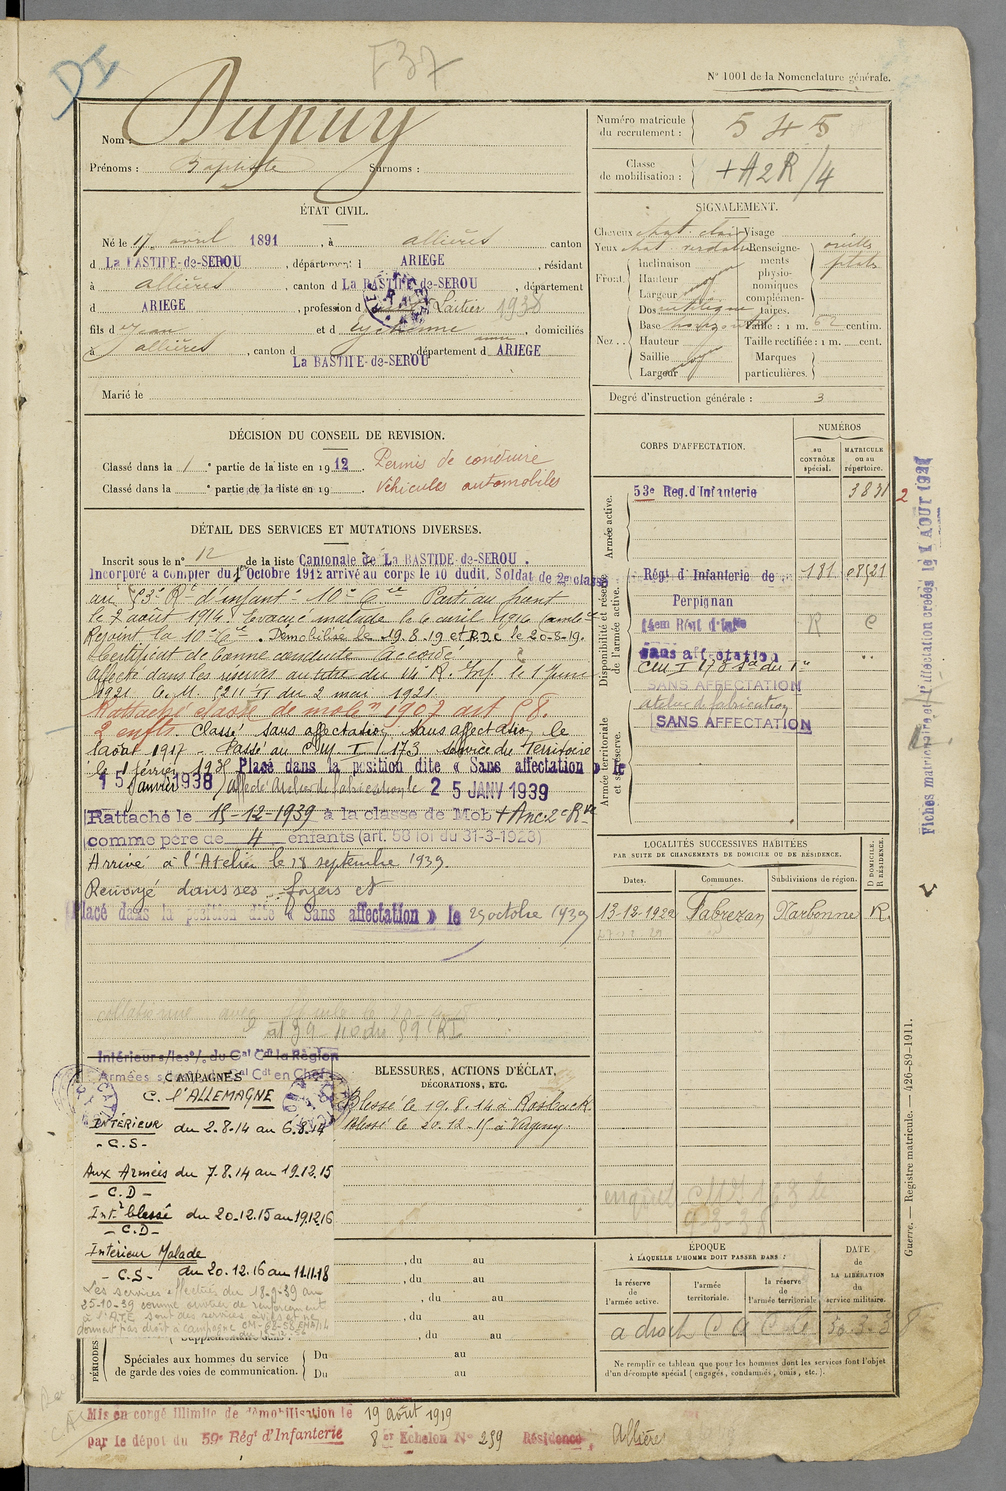 DI
F37
N° 1001 de la Nomenclature générale.
Nom : Dupuy
Prénoms : Baptiste Surnoms :
Numéro matricule du recrutement : 545
Classe de mobilisation : +A2R/4
ÉTAT CIVIL.
Né le 17 avril 1891, à Allières canton
d La BASTIDE-de-SEROU, département d ARIEGE, résidant
à Allières, canton d La BASTIDE-de-SEROU, département
d ARIEGE, profession d Laitier 1938
fils d Jean et d , domiciliés
à Allières, canton d La BASTIDE-de-SEROU département d ARIEGE
Marié le
SIGNALEMENT.
Cheveux chat. clair Visage
Yeux chat. verdatre Renseignements physionomiques complémentaires.
Front
Inclinaison
Hauteur
Largeur
Nez
Dos
Base
Hauteur
Saillie
Largeur
Taille : 1 m. 62 centim.
Taille rectifiée : 1 m. cent.
Marques particulières.
Degré d'instruction générale : 3
DÉCISION DU CONSEIL DE REVISION.
Classé dans la 1e partie de la liste en 1912. Permis de conduire
Classé dans la e partie de la liste en 19 Véhicules automobiles
DÉTAIL DES SERVICES ET MUTATIONS DIVERSES.
Inscrit sous le n° 12 de la liste Cantonale de La BASTIDE-de-SEROU.
Incorporé à compter du 1 Octobre 1912 arrivé au corps le 10 dudit. Soldat de 2e classe
au 53e Rt d'Infant. 10e Cie Parti au front
le 7 août 1914. Evacué malade le 6 avril 1916
Rejoint la 10e Cie. Démobilisé le 19.8.19 et RDC le 20-8-19.
Certificat de bonne conduite accordé
Affecté dans les réserves au titre du 14e R. Inf. le 1 Juin
1921. C.M. II du 2 mai 1921.
Rattaché classe de mob 1907 art 58.
2 enfts. Classé sans affectation le
1 août 1927 - Passé au C.M. I 173 service du Territoire
le 1 février 1938 Placé dans la position dite « Sans affectation » le
15 Janvier 1938 Affecté Atelier de fabrication le 25 JANV 1939
Rattaché le 15-12-1939 à la classe de Mob +Anc 2e Rve
comme père de 4 enfants (art. 58 loi du 31-3-1928)
Arrivé à l'Atelier le 18 septembre 1939.
Renvoyé dans ses foyers et
Placé dans la position dite « Sans affectation » le 25 octobre 1939
CORPS D'AFFECTATION.
NUMÉROS
au CONTRÔLE spécial.
MATRICULE ou au répertoire.
Armée active.
53e Reg. d'Infanterie 3831 2
Disponibilité et réserve de l'armée active.
Régt d'Infanterie de Perpignan 181 08521
14em Régt d'Infie R C
Sans affectation
CM I 173
SANS AFFECTATION
Atelier de fabrication
SANS AFFECTATION
Armée territoriale et sa réserve.
Fiches matriculaire et d'affectation créées le 1 AOUT 1927
LOCALITÉS SUCCESSIVES HABITÉES
PAR SUITE DE CHANGEMENTS DE DOMICILE OU DE RÉSIDENCE.
Dates. Communes. Subdivisions de région. D DOMICILE. R RÉSIDENCE.
13-12-1922 Fabrezan Narbonne R.
Intérieurs/les o/. du Gal Cdt la Région
Armées s/ Gal Cdt en Chef
CAMPAGNES
C. l'ALLEMAGNE
INTÉRIEUR du 2.8.14 au 6.8.14
- C.S -
Aux Armées du 7.8.14 au 19.12.15
- C.D -
Intr blessé du 20.12.15 au 19.12.16
- C.D -
Intérieur Malade
- C.S - du 20.12.16 au 11.11.18
Les services effectués du 18-9-39 au
25-10-39 comme ouvrier de renforcement
à l'ATE sont des services civils et ne
donnent pas droit à campagne
BLESSURES, ACTIONS D'ÉCLAT,
DÉCORATIONS, ETC.
Blessé le 19.8.14 à Rosback.
Blessé le 20-12-15 à
, du au
, du au
, du au
, du au
, du au
PÉRIODES
Spéciales aux hommes du service de garde des voies de communication.
Du au
Du au
ÉPOQUE
À LAQUELLE L'HOMME DOIT PASSER DANS :
la réserve de l'armée active.
l'armée territoriale.
la réserve de l'armée territoriale
DATE de LA LIBÉRATION du service militaire.
a droit
Ne remplir ce tableau que pour les hommes dont les services font l'objet
d'un décompte spécial (engagés, condamnés, omis, etc.).
Guerre. — Registre matricule. — 426-89-1911.
Mis en congé illimité de démobilisation le 19 août 1919
par le dépôt du 59e Régt d'Infanterie 8er Echelon N° 259 Résidence Allières